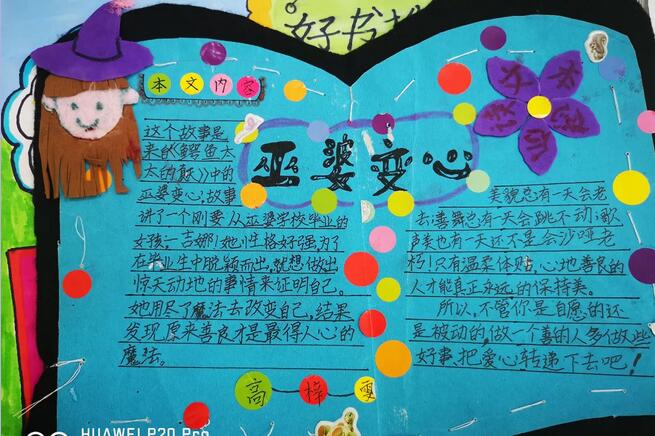 好书推
本文内容
巫婆变心
这个故事是
来自《鳄鱼太
太的鼓》中的
巫婆变心,故事
讲了一个刚要从巫婆学校毕业的
女孩:吉娜!她性格好强为了
在毕业生中脱颖而出,就想做出
惊天动地的事情来证明自己。
她用尽了魔法去改变自己,结果
发现原来善良才是最得人心的
魔法。
美貌总有一天会老
去;善舞总有一天会跳不动;歌
声美也有一天还不是会沙哑老
朽!只有温柔体贴、心地善良的
人才能真正永远的保持美。
所以,不管你是自愿的还
是被动的,做一个善的人多做些
好事,把爱心转递下去吧!
高梓雯
HUAWEI P20 Pro